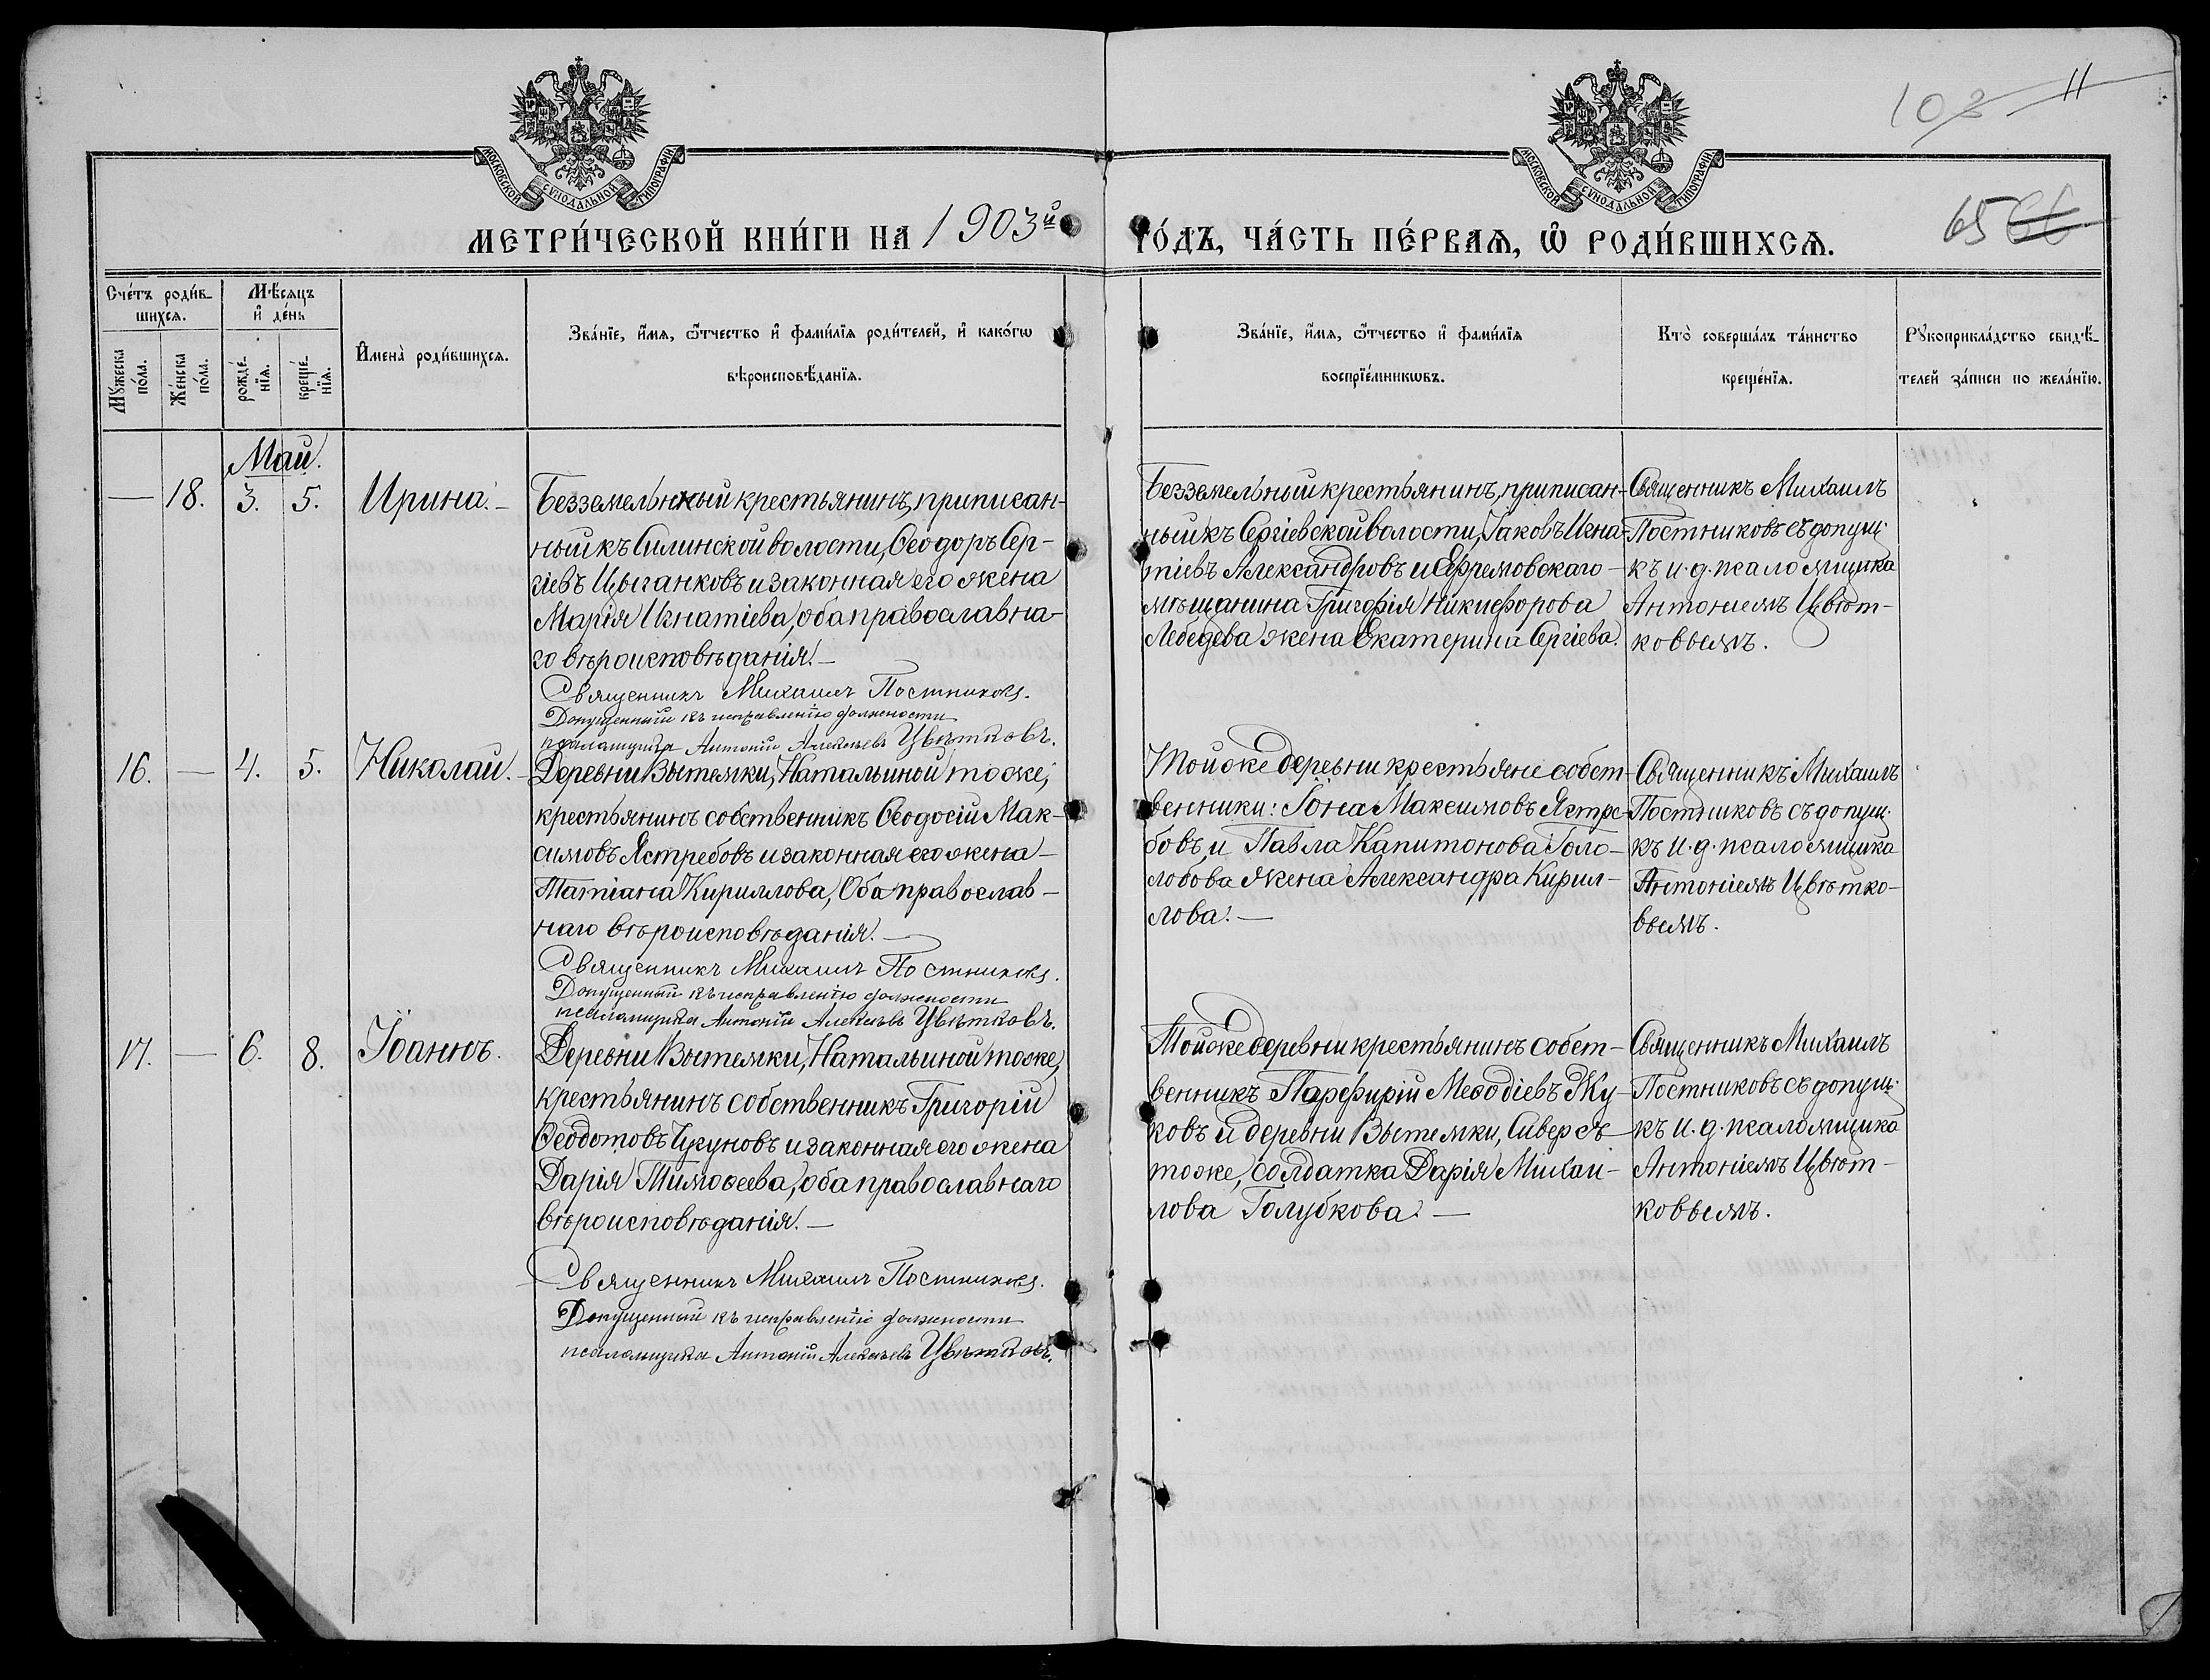 МОСКОВСКОЙ СѴНОДАЛЬНОЙ ТИПОГРАФІИ.
МОСКОВСКОЙ СѴНОДАЛЬНОЙ ТИПОГРАФІИ.
103 11
65 66
МЕТРИ́ЧЕСКОЙ КНИ́ГИ НА 1903й
ГО́ДЪ, ЧА́СТЬ ПЕ́РВАѦ, Ѽ РОДИ́ВШИХСѦ.
Сче́тъ роди́в-
шихсѧ.
Мꙋ́жеска по́ла.
Же́нска по́ла.
Мѣ́сѧцъ
и҆ де́нь
рожде́-
нїѧ.
креще́-
нїѧ.
И҆мена̀ роди́вшихсѧ.
Зва́нїе, и҆́мѧ, ѻ҆́тчество и҆ фамі́лїѧ роди́телей, и҆ како́гѡ
вѣроисповѣ́данїѧ.
Зва́нїе, и҆́мѧ, ѻ҆́тчество и҆ фамі́лїѧ
воспрїе́мникѡвъ.
Кто̀ соверша́лъ та́инство
креще́нїѧ.
Рꙋкоприкла́дство свидѣ́-
телей за́писи по жела́нїю.
Май.
— 18. 3. 5. Ирина. —
Безземельный крестьянинъ, приписан-
ный къ Силинской волости, Ѳеодоръ Сер-
гіевъ Цыганковъ и законная его жена
Марія Игнатіева, оба православна-
го вѣроисповѣданія. —
Священникъ Михаилъ Постниковъ.
Допущенный къ исправленію должности
псаломщика Антоній Алексѣевъ Цвѣтковъ.
Безземельный крестьянинъ, приписан-
ный къ Сергіевской волости, Іаковъ Игна-
тіевъ Александровъ и Ефремовскаго
мѣщанина Григорія Никифорова
Лебедева жена Екатерина Сергіева.
Священникъ Михаилъ
Постниковъ съ допущ.
къ и. д. псаломщика
Антоніемъ Цвѣт-
ковымъ.
16. — 4. 5. Николай. —
Деревни Вытемки, Натальиной тоже,
крестьянинъ собственникъ Ѳеодосій Мак-
симовъ Ястребовъ и законная его жена
Татіана Кириллова, Оба православ-
наго вѣроисповѣданія. —
Священникъ Михаилъ Постниковъ.
Допущенный къ исправленію должности
псаломщика Антоній Алексѣевъ Цвѣтковъ.
Той же деревни крестьяне собст-
венники: Іона Максимовъ Ястре-
бовъ и Павла Капитонова Голо-
лобова жена Александра Кирил-
лова. —
Священникъ Михаилъ
Постниковъ съ допущ.
къ и. д. псаломщика
Антоніемъ Цвѣтко-
вымъ.
17. — 6. 8. Іоаннъ.
Деревни Вытемки, Натальиной тоже,
крестьянинъ собственникъ Григорій
Ѳеодотовъ Чугуновъ и законная его жена
Дарія Тимоѳеева, оба православнаго
вѣроисповѣданія. —
Священникъ Михаилъ Постниковъ.
Допущенный къ исправленію должности
псаломщика Антоній Алексѣевъ Цвѣтковъ.
Той же деревни крестьянинъ собст-
венникъ Парфирій Меѳодіевъ Жу-
ковъ и деревни Вытемки, Сиверсъ
тоже, солдатка Дарія Михаи-
лова Голубкова. —
Священникъ Михаилъ
Постниковъ съ допущ.
къ и. д. псаломщика
Антоніемъ Цвѣт-
ковымъ.